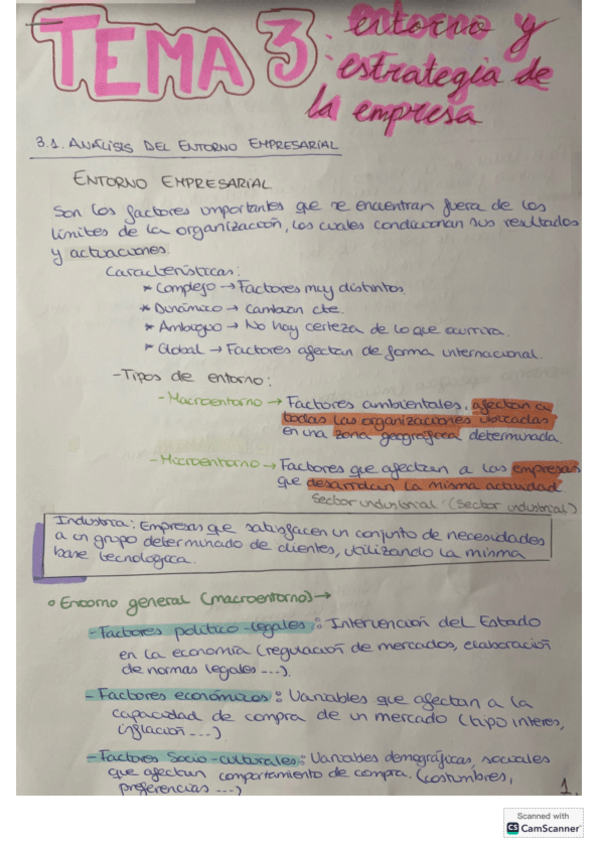 TEMA 3: entorno y
estrategia de
la empresa
3.1. ANÁLISIS DEL ENTORNO EMPRESARIAL
ENTORNO EMPRESARIAL
Son los factores importantes que se encuentran fuera de los
límites de la organización, los cuales condicionan sus resultados
y actuaciones.
Características:
* Complejo → Factores muy distintos.
* Dinámico → Cambian cte.
* Ambiguo → No hay certeza de lo que ocurrira.
* Global → Factores afectan de forma internacional.
- Tipos de entorno:
- Macroentorno → Factores ambientales, afectan a
todas las organizaciones ubicadas
en una zona geográfica determinada.
- Microentorno → Factores que afectan a las empresas
que desarrollan la misma actividad.
Sector industrial (Sector industrial)
Industria: Empresas que satisfacen un conjunto de necesidades
a un grupo determinado de clientes, utilizando la misma
base tecnologica.
o Entorno general (macroentorno) →
- Factores político-legales: Intervención del Estado
en la economía (regulación de mercados, elaboración
de normas legales ...).
- Factores económicos: Variables que afectan a la
capacidad de compra de un mercado (tipo interes,
inflación ...)
- Factores Socio-culturales: Variables demográficas, sociales
que afectan comportamiento de compra. (costumbres,
preferencias ...)
1.
Scanned with
CS CamScanner